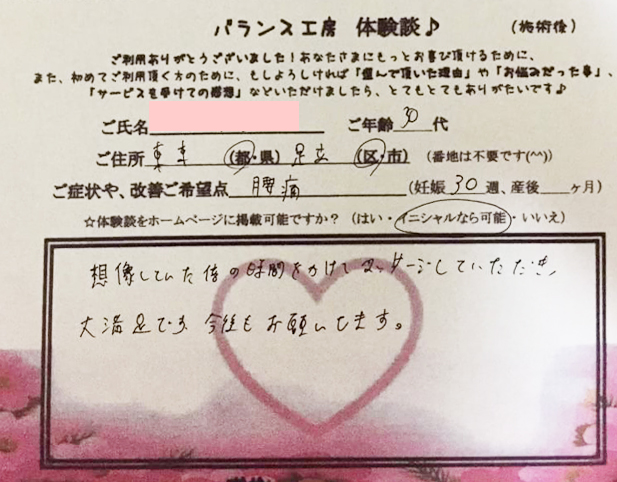 バランス工房 体験談♪ (施術後)
ご利用ありがとうございました!あなたさまにもっとお喜び頂けるために、
また、初めてご利用頂く方のために、もしよろしければ「選んで頂いた理由」や「お悩みだった事」、
「サービスを受けての感想」などいただけましたら、とてもとてもありがたいです♪
ご氏名 ご年齢 30 代
ご住所 東京 (都・県) 足立 (区・市) (番地は不要です(^^))
ご症状や、改善ご希望点 腰痛 (妊娠 30 週、産後 ヶ月)
☆体験談をホームページに掲載可能ですか? (はい・イニシャルなら可能・いいえ)
想像していた倍の時間をかけてマッサージしていただき、
大満足です。今後もお願いします。